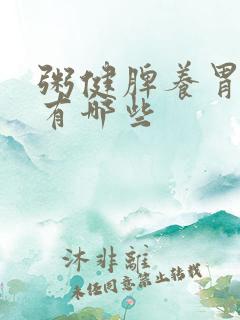 粥健脾养胃
有哪些
沐非離
未经同意禁止转载